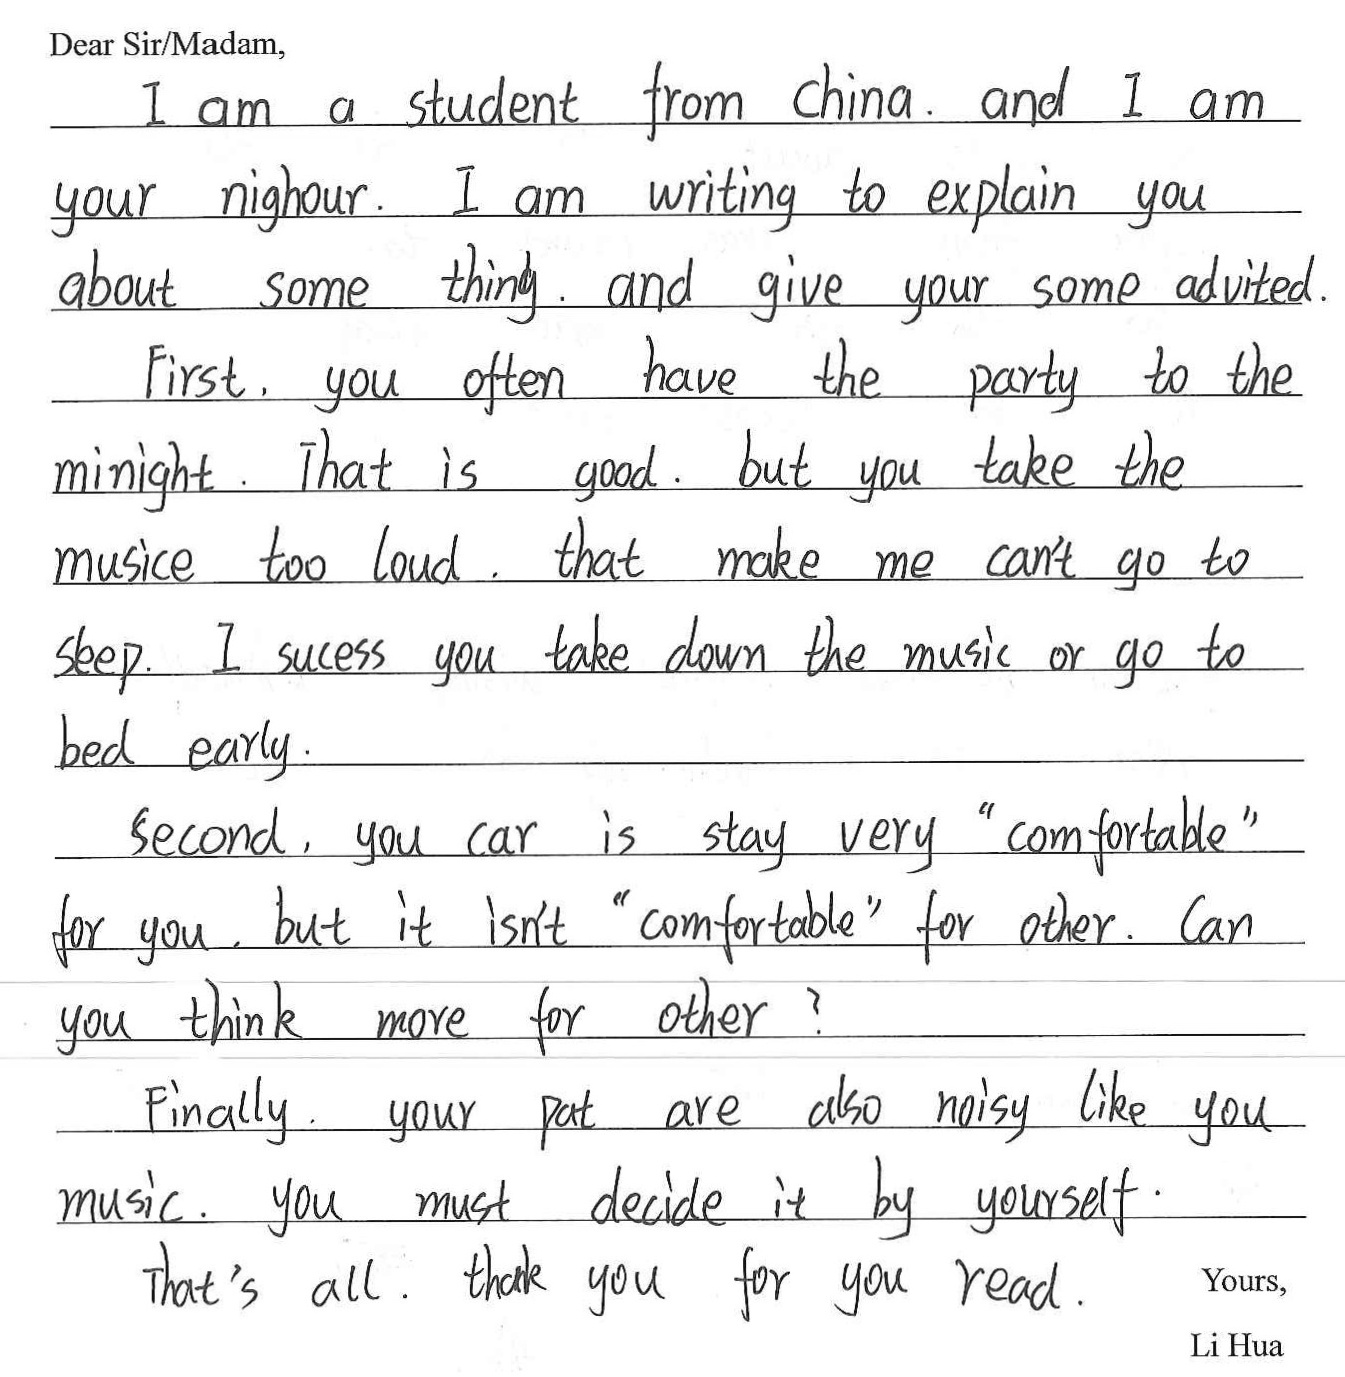 Dear Sir/Madam,
I am a student from China. and I am
your nighour. I am writing to explain you
about some thing. and give your some advited.
First, you often have the party to the
minight. That is good. but you take the
musice too loud. that make me can't go to
sleep. I sucess you take down the music or go to
bed early.
Second, you car is stay very "comfortable"
for you, but it isn't "comfortable" for other. Can
you think more for other?
Finally. your pat are also noisy like you
music. you must decide it by yourself.
That's all. thank you for you read.
Yours,
Li Hua